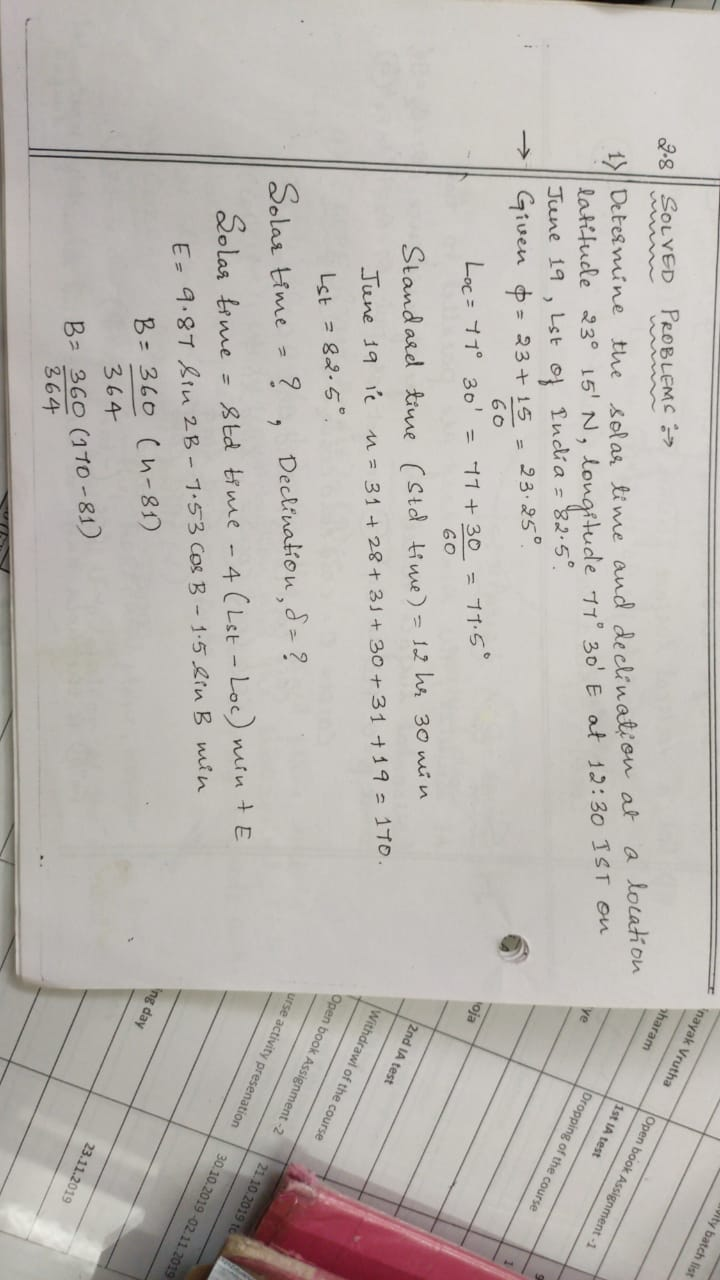 2.8 SOLVED PROBLEMS :→
1) Determine the solar time and declination at a location
latitude 23° 15' N, longitude 77° 30' E at 12:30 IST on
June 19, Lst of India = 82.5°.
→ Given ϕ = 23 + 15/60 = 23.25°.
Loc = 77° 30' = 77 + 30/60 = 77.5°
Standard time (Std time) = 12 hr 30 min
June 19 ie n = 31 + 28 + 31 + 30 + 31 + 19 = 170.
Lst = 82.5°.
Solar time = ? , Declination, δ = ?
Solar time = Std time - 4 (Lst - Loc) min + E
E = 9.87 Sin 2B - 7.53 Cos B - 1.5 Sin B min
B = 360/364 (n - 81)
B = 360/364 (170 - 81)
ity batch list
nayak Vrutha
haram
Open book Assignment -1
1st IA test
ye
Dropping of the course
oja
2nd IA test
Withdrawl of the course
Open book Assignment -2
urse activity presenation
21.10.2019
30.10.2019 -02.11.2019
ng day
23.11.2019